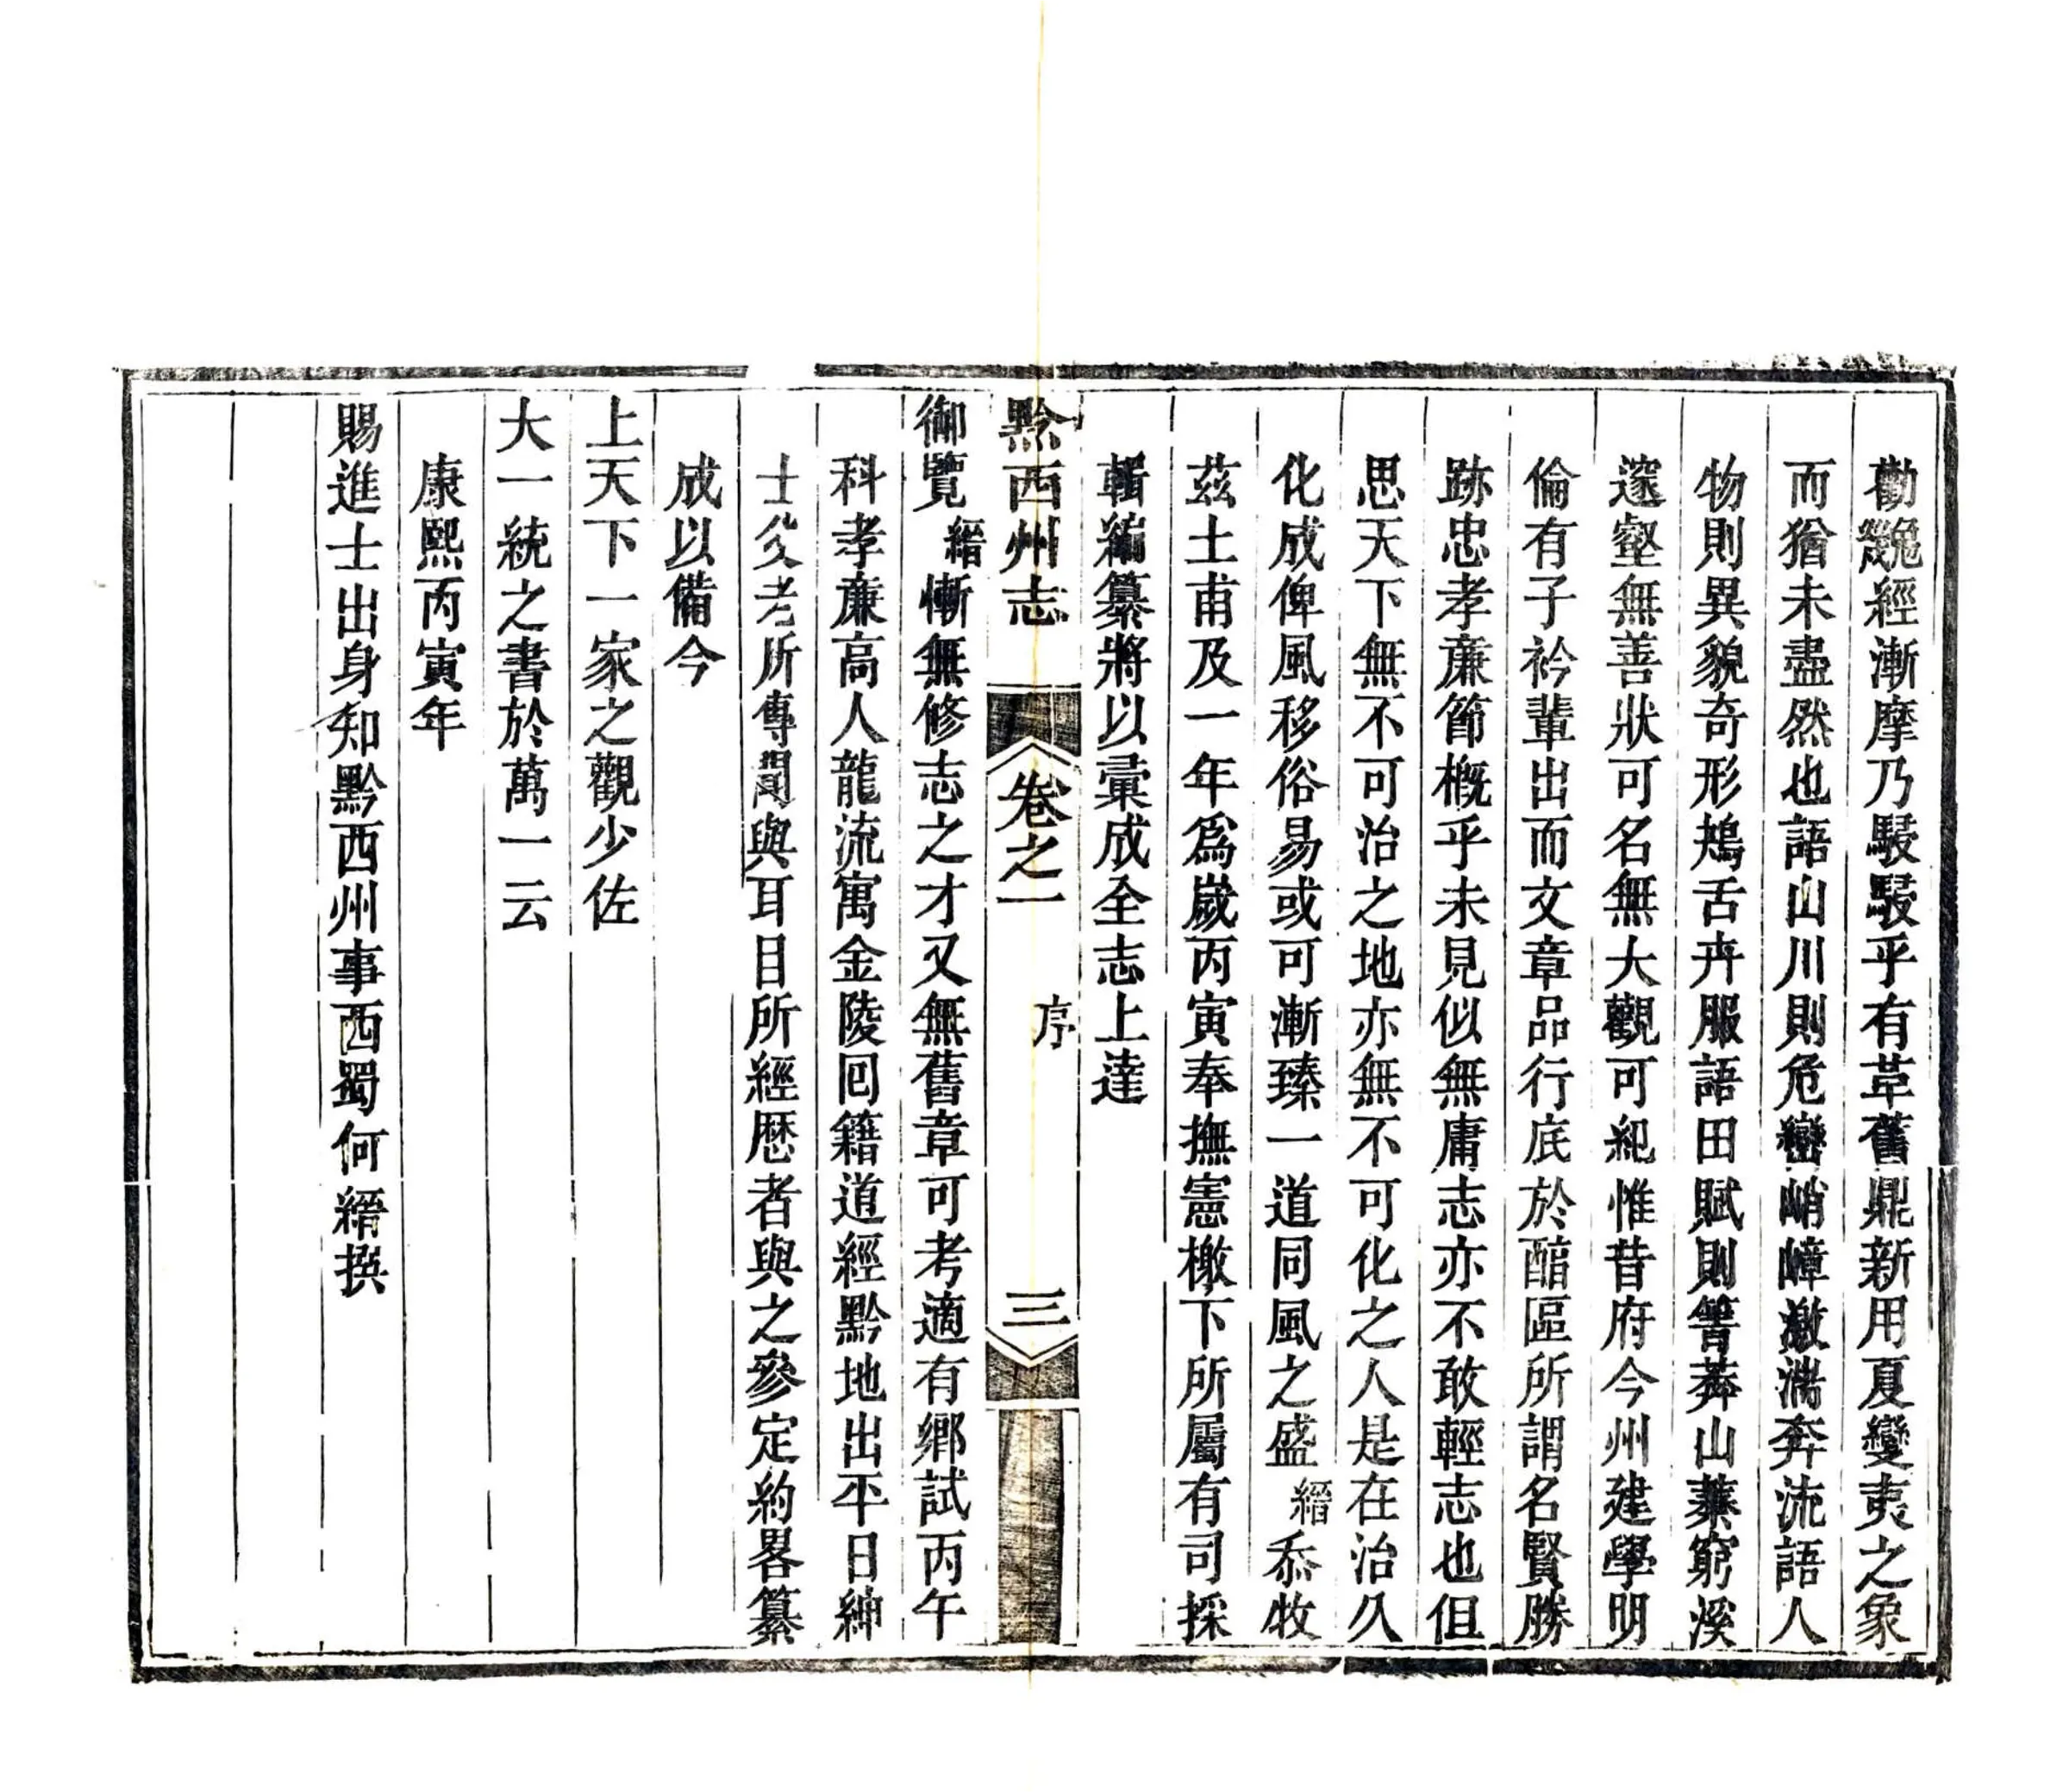 勸㡬經漸摩乃駸駸乎有革舊鼎新用夏變夷之象
而猶未盡然也語山川則危巒峭嶂激湍奔流語人
物則異貌奇形鴂舌卉服語田賦則箐莽山蓁窮溪
邃壑無善狀可名無大觀可紀惟昔府今州建學明
倫有子衿輩出而文章品行底於酩區所謂名賢勝
跡忠孝廉節概乎未見似無庸志亦不敢輕志也但
思天下無不可治之地亦無不可化之人是在治久
化成俾風移俗易或可漸臻一道同風之盛縉忝牧
茲土甫及一年為嵗丙寅奉撫憲檄下所屬有司採
輯編纂將以彙成全志上達
黔西州志 卷之一 序 三
御覽縉慚無修志之才又無舊章可考適有鄉試丙午
科孝廉高人龍流寓金陵回籍道經黔地出平日紳
士父老所傳聞與耳目所經歴者與之參定約畧纂
成以備今
上天下一家之觀少佐
大一統之書於萬一云
康熙丙寅年
賜進士出身知黔西州事西蜀何縉撰